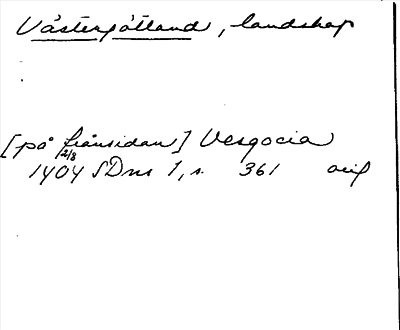 Västergötland, landskap
[på frånsidan] Vesgocia
1404 2/8 SDns 1, s. 361 orig